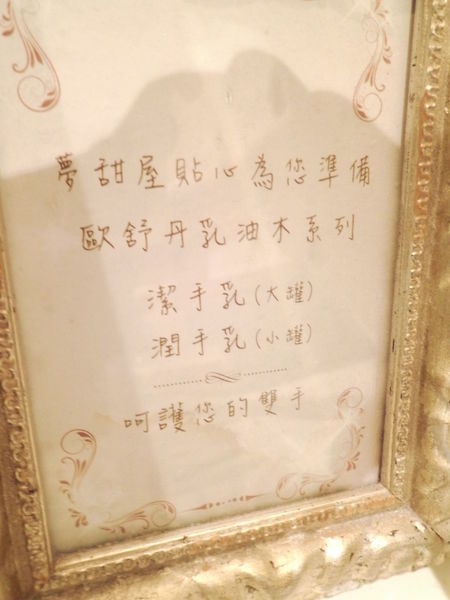 夢甜屋貼心為您準備
歐舒丹乳油木系列
潔手乳(大罐)
潤手乳(小罐)
呵護您的雙手